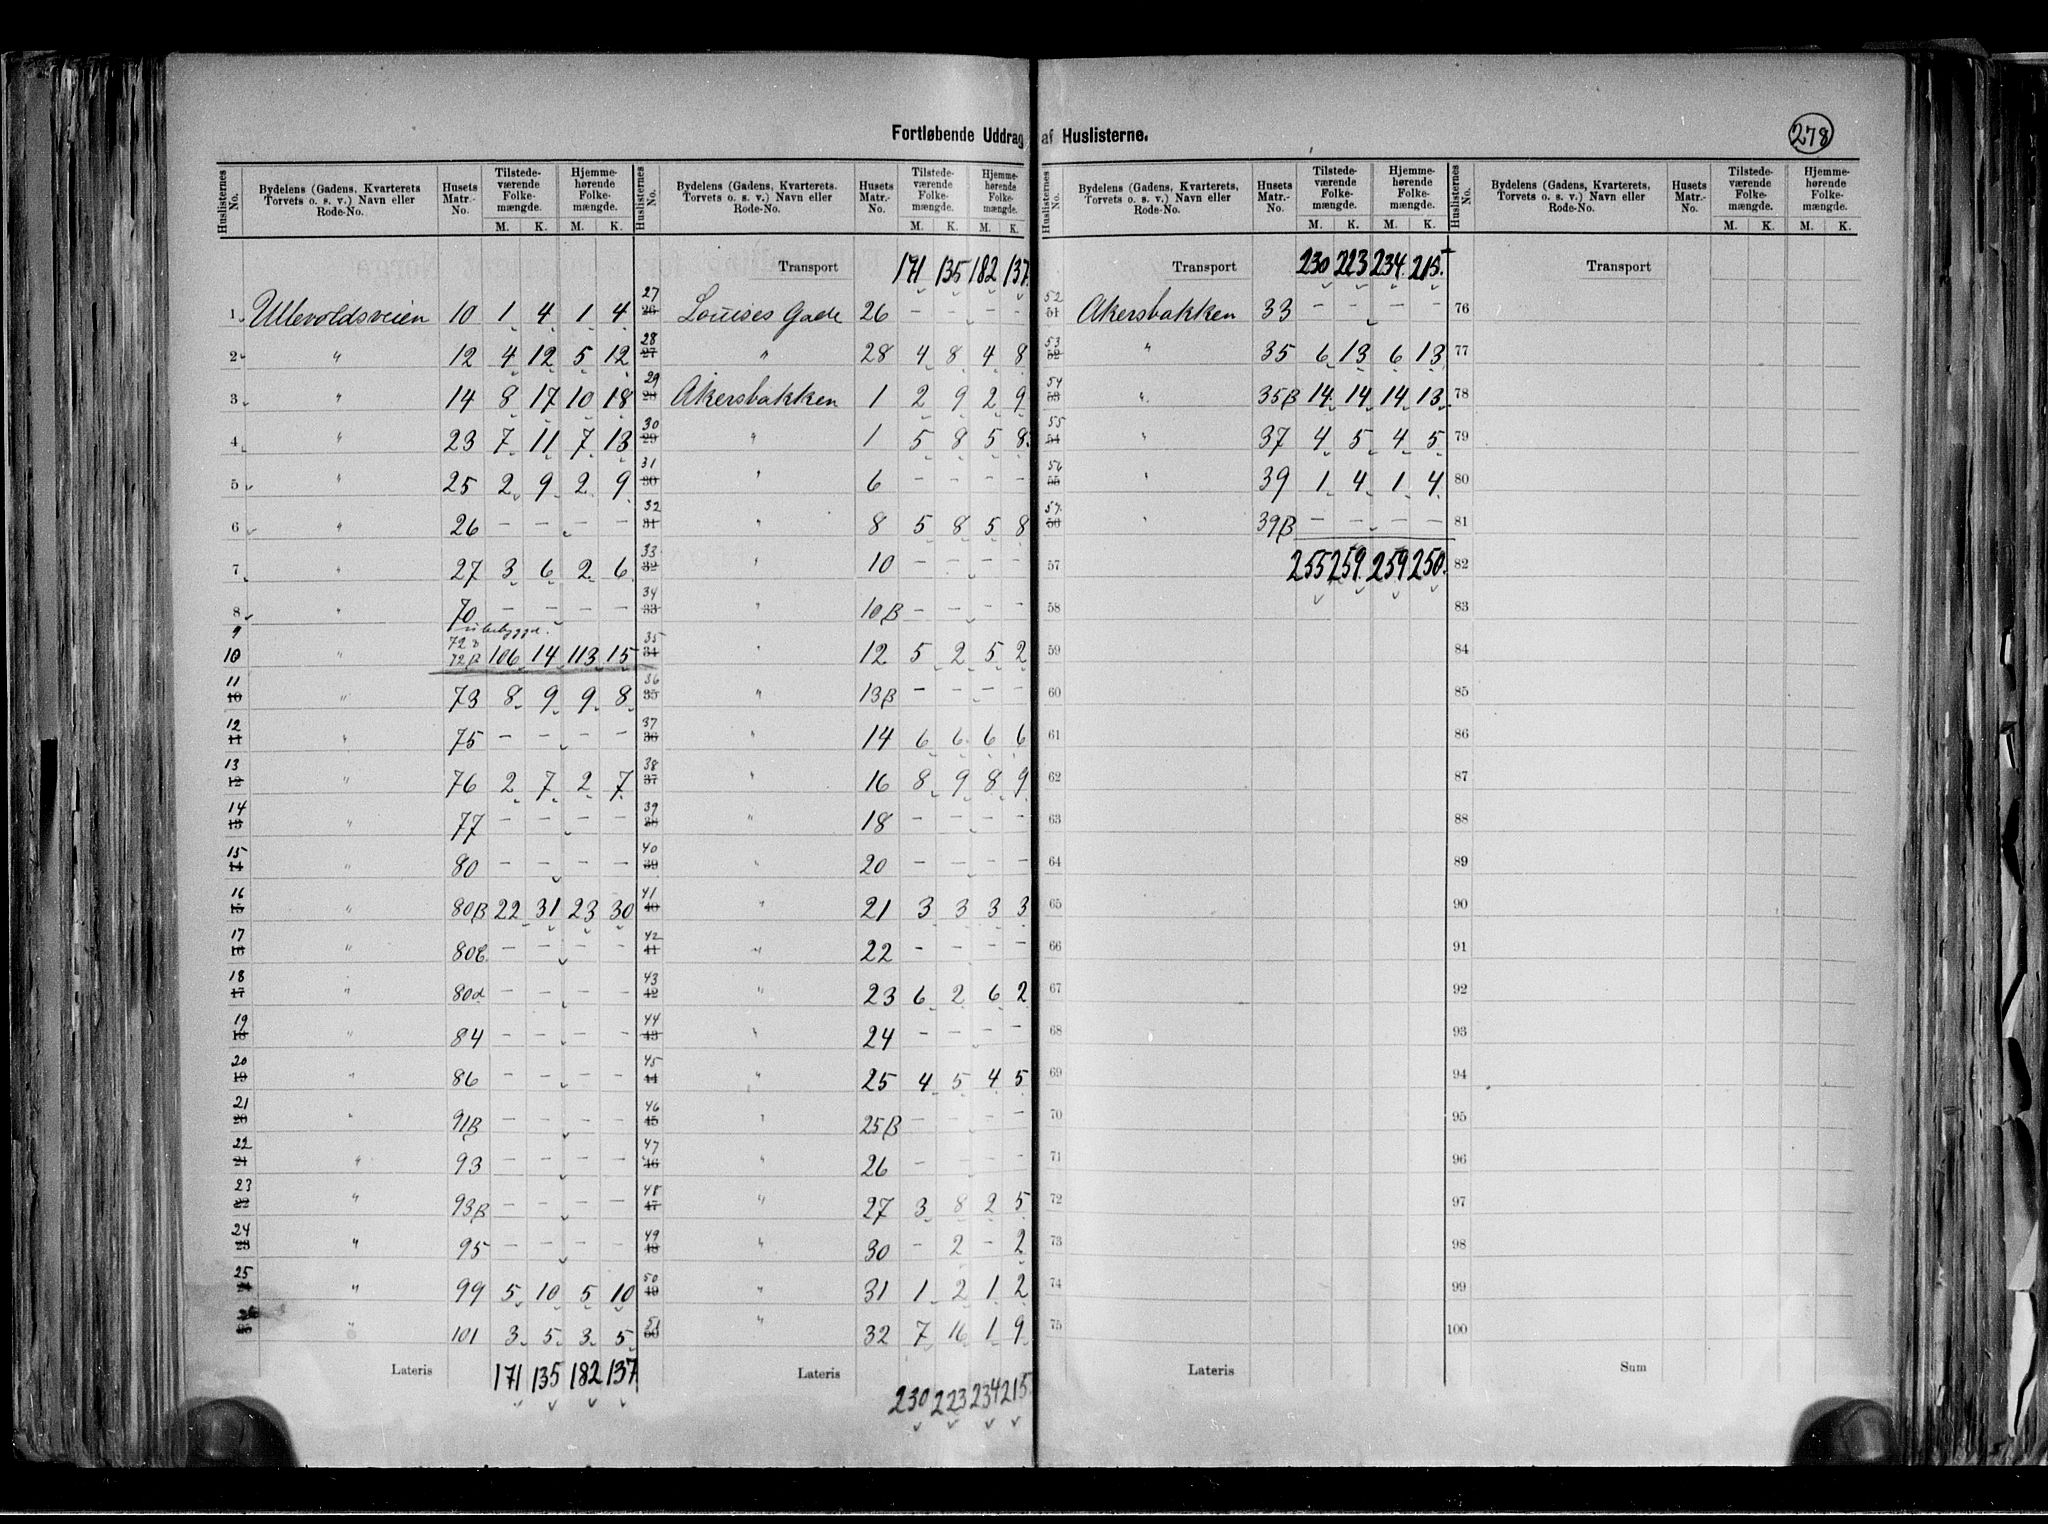 Fortløbende Uddrag af Huslisterne.
278
Huslisternes No. | Bydelens (Gadens, Kvarterets Torvets o. s. v.) Navn eller Rode-No. | Husets Matr.-No. | Tilstedeværende Folkemængde. M. K. | Hjemmehørende Folkemængde. M. K.
1 Ullevoldsveien 10 1 4 1 4
2 " 12 4 12 5 12
3 " 14 8 17 10 18
4 " 23 7 11 7 13
5 " 25 2 9 2 9
6 " 26 – – – –
7 " 27 3 6 2 6
8 " 70 – – – –
9 ubebyggd.
10 " 72B 106 14 113 15
11 10 " 73 8 9 9 8
12 11 " 75 – – – –
13 12 " 76 2 7 2 7
14 13 " 77 – – – –
15 14 " 80 – – – –
16 15 " 80B 22 31 23 30
17 16 " 80c – – – –
18 17 " 80d – – – –
19 18 " 84 – – – –
20 19 " 86 – – – –
21 20 " 91B – – – –
22 21 " 93 – – – –
23 22 " 93B – – – –
24 23 " 95 – – – –
25 24 " 99 5 10 5 10
26 25 " 101 3 5 3 5
Lateris 171 135 182 137
Huslisternes No. | Bydelens (Gadens, Kvarterets. Torvets o. s. v.) Navn eller Rode-No. | Husets Matr.-No. | Tilstedeværende Folkemængde. M. K. | Hjemmehørende Folkemængde. M. K.
Transport 171 135 182 137
27 26 Louises Gade 26 – – – –
28 27 " 28 4 8 4 8
29 28 Akersbakken 1 2 9 2 9
30 29 " 1 5 8 5 8
31 30 " 6 – – – –
32 31 " 8 5 8 5 8
33 32 " 10 – – – –
34 33 " 10B – – – –
35 34 " 12 5 2 5 2
36 35 " 13B – – – –
37 36 " 14 6 6 6 6
38 37 " 16 8 9 8 9
39 38 " 18 – – – –
40 39 " 20 – – – –
41 40 " 21 3 3 3 3
42 41 " 22 – – – –
43 42 " 23 6 2 6 2
44 43 " 24 – – – –
45 44 " 25 4 5 4 5
46 45 " 25B – – – –
47 46 " 26 – – – –
48 47 " 27 3 8 2 5
49 48 " 30 – 2 – 2
50 49 " 31 1 2 1 2
51 50 " 32 7 16 1 9
Lateris 230 223 234 215
Huslisternes No. | Bydelens (Gadens, Kvarterets, Torvets o. s. v.) Navn eller Rode-No. | Husets Matr.-No. | Tilstedeværende Folkemængde. M. K. | Hjemmehørende Folkemængde. M. K.
Transport 230 223 234 215
52 51 Akersbakken 33 – – – –
53 52 " 35 6 13 6 13
54 53 " 35B 14 14 14 13
55 54 " 37 4 5 4 5
56 55 " 39 1 4 1 4
57 56 " 39B – – – –
57 255 259 259 250
58
59
60
61
62
63
64
65
66
67
68
69
70
71
72
73
74
75
Lateris
Huslisternes No. | Bydelens (Gadens, Kvarterets, Torvets o. s. v.) Navn eller Rode-No. | Husets Matr.-No. | Tilstedeværende Folkemængde. M. K. | Hjemmehørende Folkemængde. M. K.
Transport
76
77
78
79
80
81
82
83
84
85
86
87
88
89
90
91
92
93
94
95
96
97
98
99
100
Sum